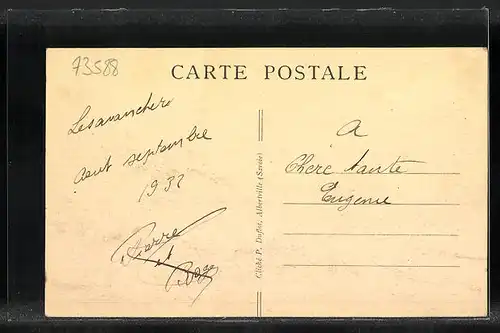 73588
CARTE POSTALE
Lesavanchers
Aout septembre
1932
Pierre
et
Roger
Cliché P. Duflot, Albertville (Savoie)
A
Chère tante
Eugenie